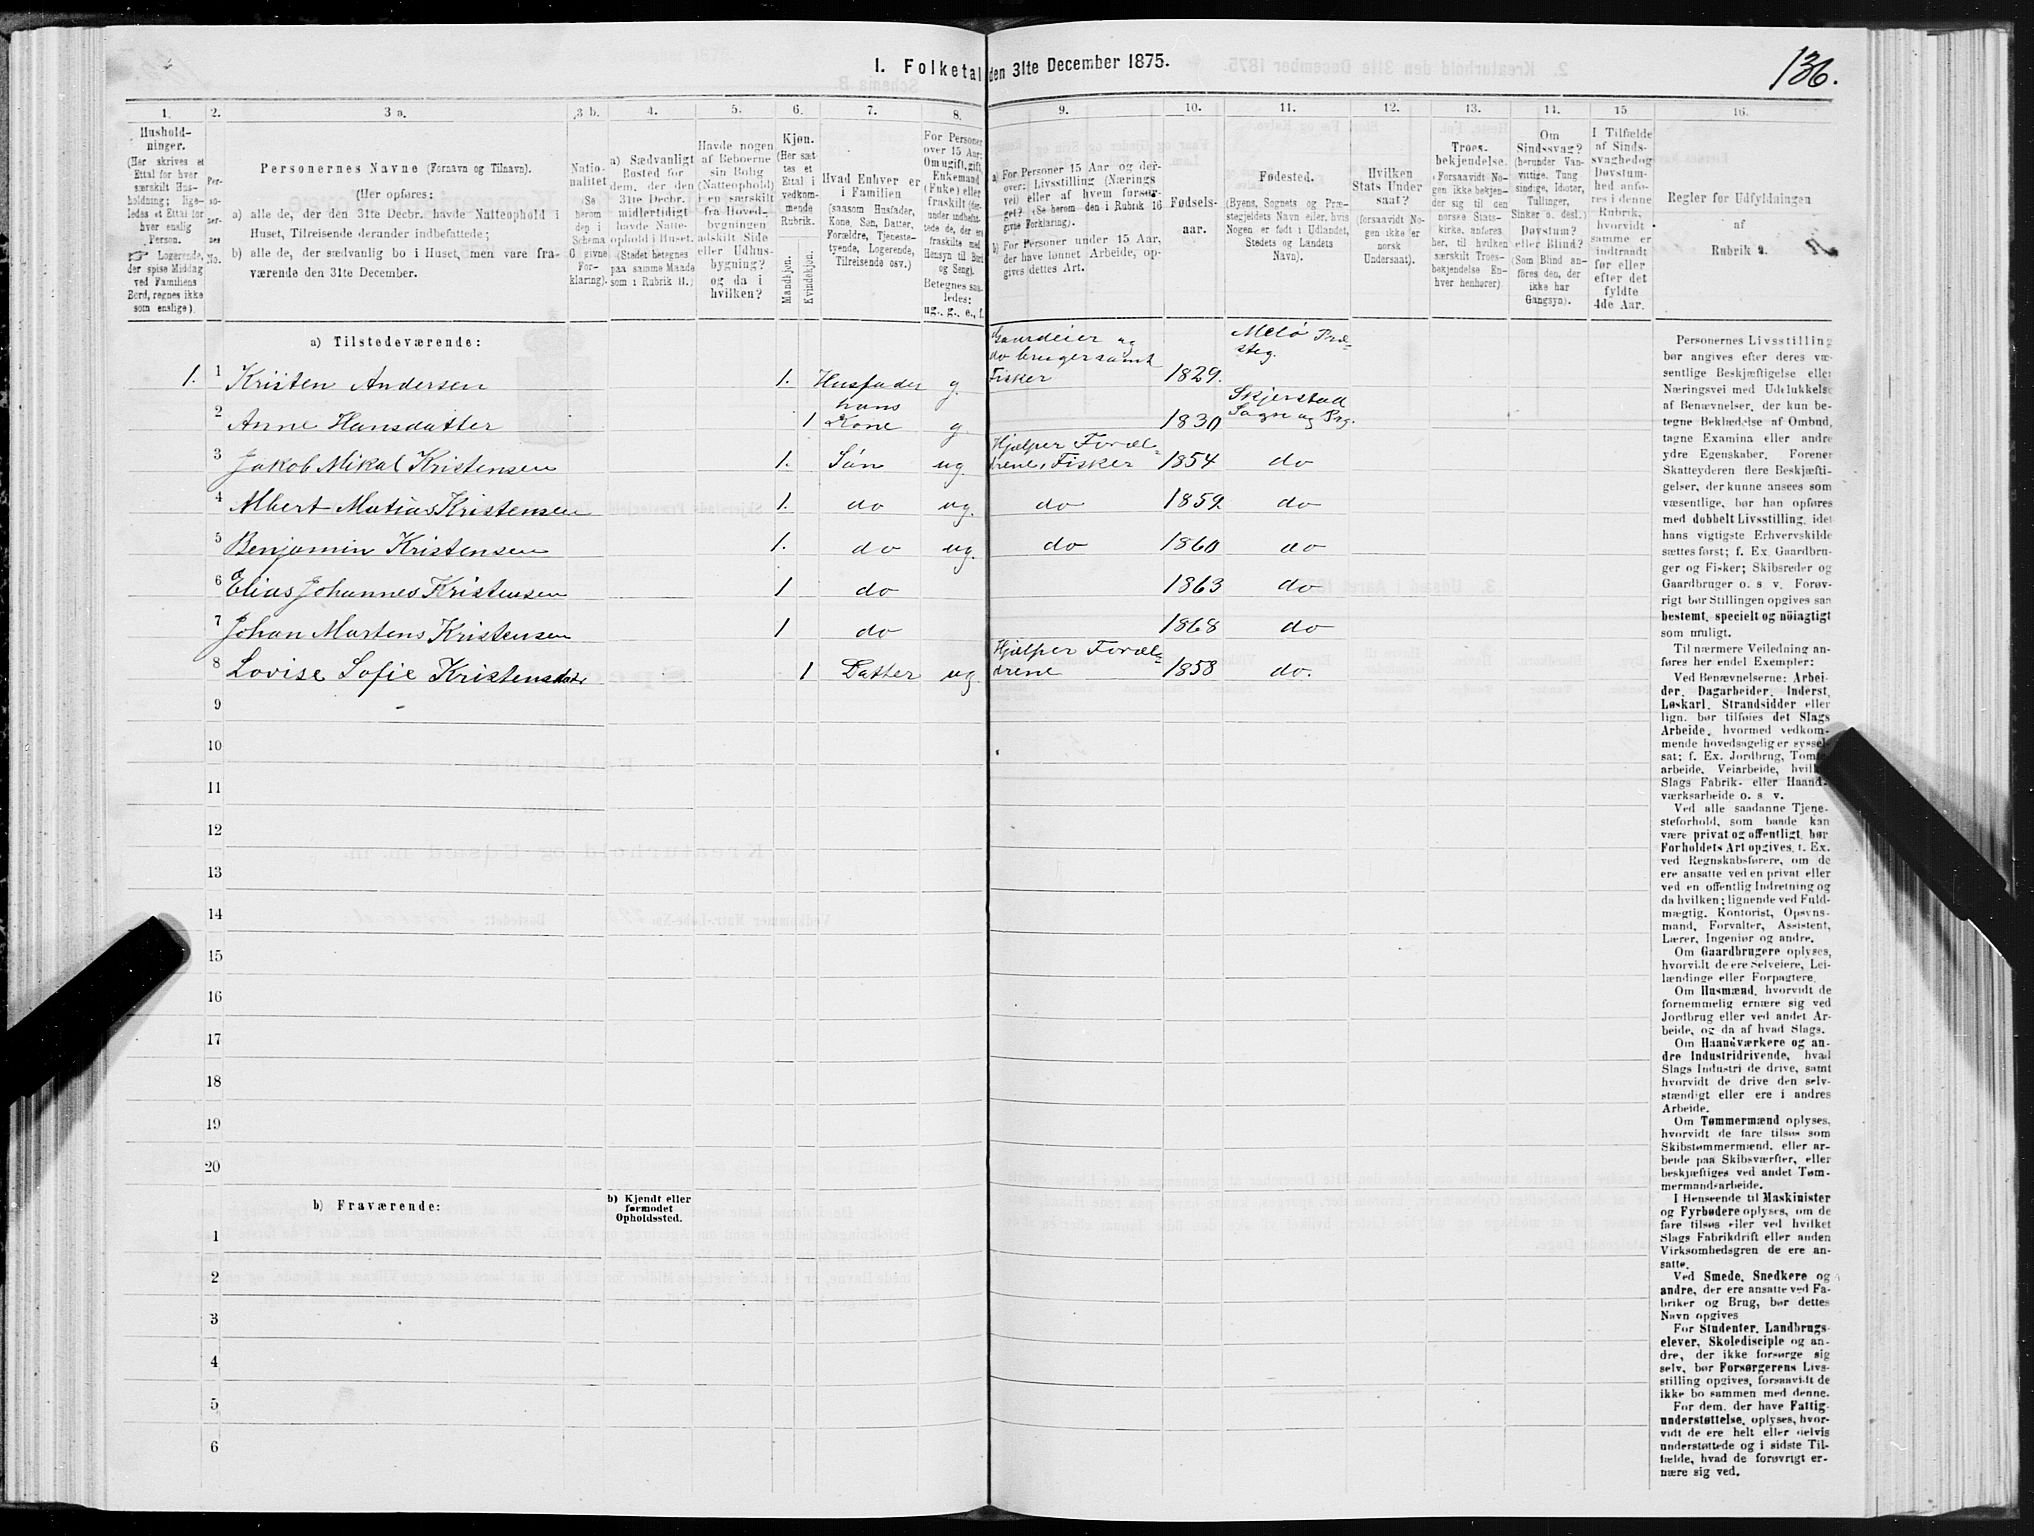 136.
1. Folketal den 31te December 1875.
1. 2. 3 a. 3 b. 4. 5. 6. 7. 8. 9. 10. 11. 12. 13. 14. 15 16.
Hushold-
ninger.
(Her skrives et
Ettal for hver
særskilt Hus-
holdning; lige-
ledes et Ettal for
hver enslig
Person.
☞ Logerende,
der spise Middag
ved Familiens
Bord, regnes ikke
som enslige).
Per-
so-
nes
No.
Personernes Navne (Fornavn og Tilnavn).
(Her opføres:
a) alle de, der den 31te Decbr. havde Natteophold i
Huset, Tilreisende derunder indbefattede;
b) alle de, der sædvanlig bo i Huset, men vare fra-
værende den 31te December.
Natio-
nalitet
(Se
herom
den i
Schema
G givne
For-
klaring).
a) Sædvanligt
Bosted for
dem, der den
31te Decbr.
midlertidigt
havde Natte-
ophold i Huset.
(Stedet betegnes
paa samme Maade
som i Rubrik 11.)
Havde nogen
af Beboerne
sin Bolig
(Natteophold)
i en særskilt
fra Hoved-
bygningen
adskilt Side
eller Udhus-
bygning?
og da i
hvilken?
Kjøn.
(Her sæt-
tes et
Ettal i
vedkom-
mende
Rubrik.
Mandkjøn.
Kvindekjøn.
Hvad Enhver er
i Familien
(saasom Husfader,
Kone, Søn, Datter,
Forældre, Tjeneste-
tyende, Logerende,
Tilreisende osv.)
For Personer
over 15 Aar:
Om ugift, gift,
Enkemand
(Enke) eller
fraskilt (der-
under indbefat-
tede de, der ere
fraskilte med
Hensyn til Bord
og Seng).
Betegnes saa-
ledes:
ug., g., e., f.
a) For Personer 15 Aar og der-
over: Livsstilling (Nærings
vei) eller af hvem forsør-
get? (Se herom den i Rubrik 16
givne Forklaring).
b) For Personer under 15 Aar,
der have lønnet Arbeide, op-
gives dettes Art.
Fødsels-
aar.
Fødested.
(Byens, Sognets og Præ-
stegjeldets Navn eller, hvis
Nogen er født i Udlandet,
Stedets og Landets
Navn).
Hvilken
Stats Under
saat?
(forsaavidt No-
gen ikke er
norsk
Undersaat).
Troes-
bekjendelse.
(Forsaavidt No-
gen ikke bekjen-
der sig til den
norske Stats-
kirke, anføres
her, til hvilken
særskilt Troes-
bekjendelse En-
hver henhører)
Om
Sindssvag?
(herunder Van-
vittige, Tung
sindige, Idioter,
Tullinger,
Sinker o. desl.)
Døvstum?
eller Blind?
(Som Blind an-
føres den, der
ikke har
Gangsyn).
I Tilfælde
af Sinds-
svaghed og
Døvstum-
hed anfø-
res i denne
Rubrik,
hvorvidt
samme er
indtraadt
før eller
efter det
fyldte
4de Aar.
Regler for Udfyldningen
af
Rubrik 9.
a) Tilstedeværende:
1. 1 Kristen Andersen 1. Husfader g. Gaardeier og do bruger samt Fisker 1829. Melö Præ-steg.
2 Anne Hansdatter 1 hans Kone g. 1830 Skjerstad Sogn og Prg.
3 Jakob Mikal Kristensen 1. Sön ug. Hjælper Foræl-drene, Fisker 1854 do
4 Albert Matias Kristensen 1. do ug. do 1859 do
5 Benjamin Kristensen 1. do ug. do 1860 do
6 Elias Johannes Kristensen 1 do 1863 do
7 Johan Martens Kristensen 1 do 1868 do
8 Lovise Sofie Kristensdatr 1 Datter ug. Hjælper Foræl-drene 1858 do.
9
10
11
12
13
14
15
16
17
18
19
20
b) Fraværende:
b) Kjendt eller
formodet
Opholdssted.
1
2
3
4
5
6
Personernes Livsstilling
bør angives efter deres væ-
sentlige Beskjæftigelse eller
Næringsvei med Udelukkelse
af Benævnelser, der kun be-
tegne Beklædelse af Ombud,
tagne Examina eller andre
ydre Egenskaber. Forener
Skatteyderen flere Beskjæfti-
gelser, der kunne ansees som
væsentlige, bør han opføres
med dobbelt Livsstilling, idet
hans vigtigste Erhvervskilde
sættes først; f. Ex. Gaardbru-
ger og Fisker; Skibsreder og
Gaardbruger o. s v. Forøv-
rigt bør Stillingen opgives saa
bestemt, specielt og nöiagtigt
som muligt.
Til nærmere Veiledning an-
føres her endel Exempler:
Ved Benævnelserne: Arbei-
der, Dagarbeider, Inderst,
Løskarl, Strandsidder eller
lign. bør tilføies det Slags
Arbeide, hvormed vedkom-
mende hovedsagelig er syssel-
sat; f. Ex. Jordbrug, Tomte-
arbeide, Veiarbeide, hvilket
Slags Fabrik- eller Haand-
værksarbeide o. s. v.
Ved alle saadanne Tjene-
steforhold, som baade kan
være privat og offentligt, bør
Forholdets Art opgives, t. Ex.
ved Regnskabsførere, om de
ere ansatte ved en privat eller
ved en offentlig Indretning og
da hvilken; lignende ved Fuld-
mægtig, Kontorist, Opsyns-
mand, Forvalter, Assistent,
Lærer, Ingeniør og andre.
Om Gaardbrugere oplyses,
hvorvidt de ere Selveiere, Lei-
lændinge eller Forpagtere.
Om Husmænd, hvorvidt de
fornemmelig ernære sig ved
Jordbrug eller ved andet Ar-
beide, og da af hvad Slags.
Om Haandværkere og an-
dre Industridrivende, hvad
Slags Industri de drive, samt
hvorvidt de drive den selv-
stændigt eller ere i andres
Arbeide.
Om Tømmermænd oplyses,
hvorvidt de fare tilsøs som
Skibstømmermænd, eller ar-
beide paa Skibsværfter, eller
beskjæftiges ved andet Tøm-
mermandsarbeide.
I Henseende til Maskinister
og Fyrbødere oplyses, om de
fare tilsøs eller ved hvilket
Slags Fabrikdrift eller anden
Virksomhedsgren de ere an-
satte.
Ved Smede, Snedkere og
andre, der ere ansatte ved Fa-
briker og Brug, bør dettes
Navn opgives
For Studenter, Landbrugs-
elever, Skoledisciple og an-
dre, der ikke forsørge sig
selv, bør Forsørgerens Livs-
stilling opgives, forsaavidt de
ikke bo sammen med denne.
For dem, der have Fattig-
understøttelse, oplyses, hvor-
vidt de ere helt eller delvis
understøttede og i sidste Til-
fælde, hvad de forøvrigt er-
nære sig ved.